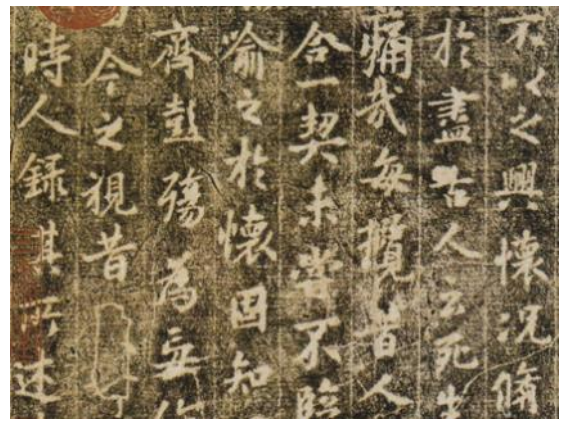 不以之興懷況脩
於盡古人云死生
痛哉每攬昔人
合一契未嘗不臨
喻之於懷固知
齊彭殤為妄作
今之視昔
時人錄其所述